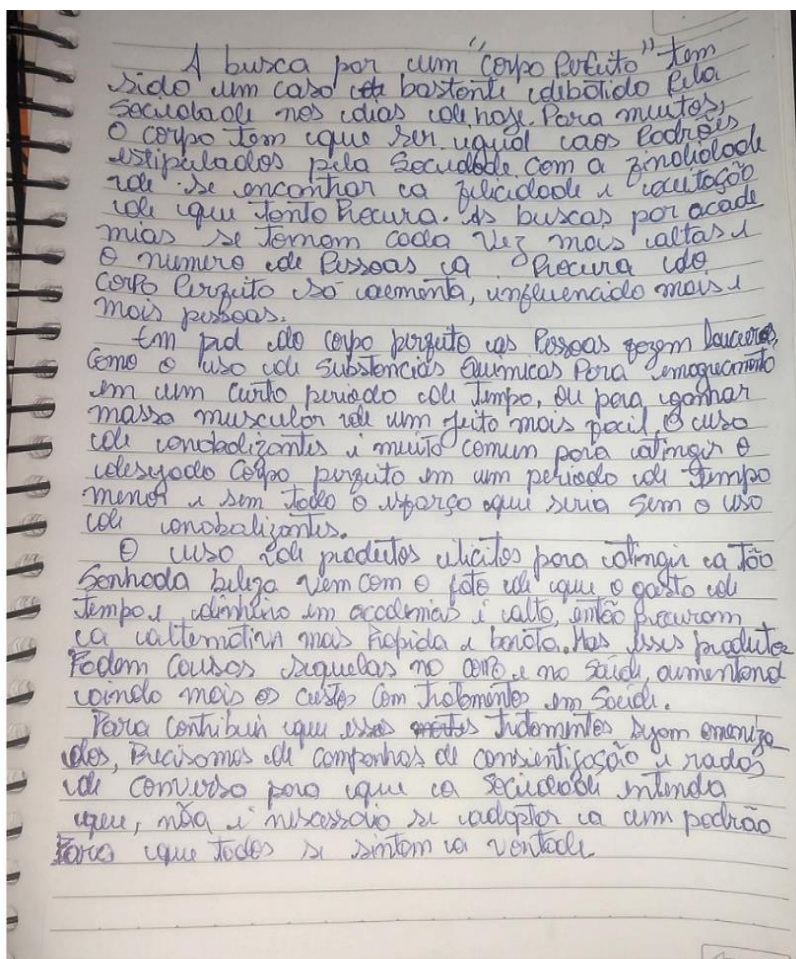 A busca por um "corpo Perfeito" tem
sido um caso bastente debatido Pela
Sociedade nos dias de hoje. Para muitos,
O corpo tem que ser igual aos Padrões
estipulados pela Sociedade com a finalidade
de se encontrar a felicidade e aceitação
de que tanto Procura. As buscas por acade
mias se tornam cada vez mais altas e
O numero de Pessoas a Procura do
corpo Perfeito só aumenta, influenciado mais e
mais pessoas.
Em do corpo perfeito as Pessoas fazem loucuras,
Como o uso de Substancias Quimicas Para emagrecimento
em um curto periodo de tempo, ou para ganhar
massa muscular de um jeito mais facil. O uso
de é muito comum para atingir o
desejado Corpo perfeito em um periodo de tempo
menor e sem todo o esforço que seria sem o uso
de
O uso de produtos ilicitos para atingir a tão
Sonhada beleza vem com o fato de que o gasto de
tempo e dinheiro em academias é alto, então procuram
a alternativa mas Rapida e barata. Mas esses produtos
Podem Causas sequelas no corpo e na Saúde, aumentand
ainda mais os custos Com tratamentos em Saúde.
Para Contribuir que esses tratamentos sejam ameniza
dos, Precisamos de campanhas de consientização e
de conversa para que a sociedade entenda
que, não é se adaptar a um padrão
Para que todos se sintam a vontade